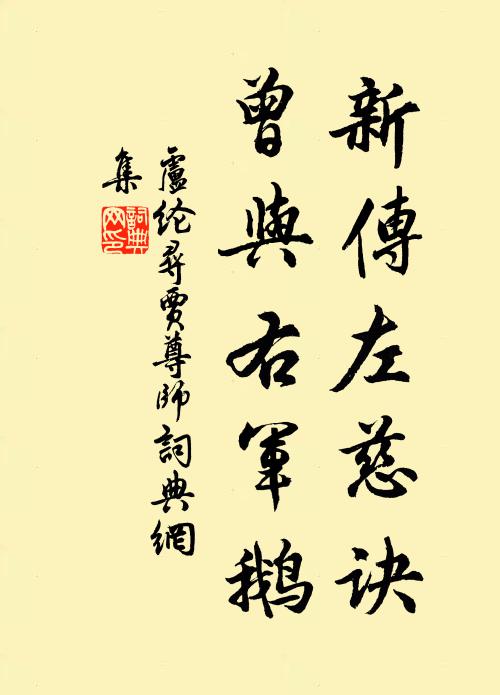 新傳左慈訣
曾與右軍鵝
盧纶尋賈尊師詞典網
集
詞典網印